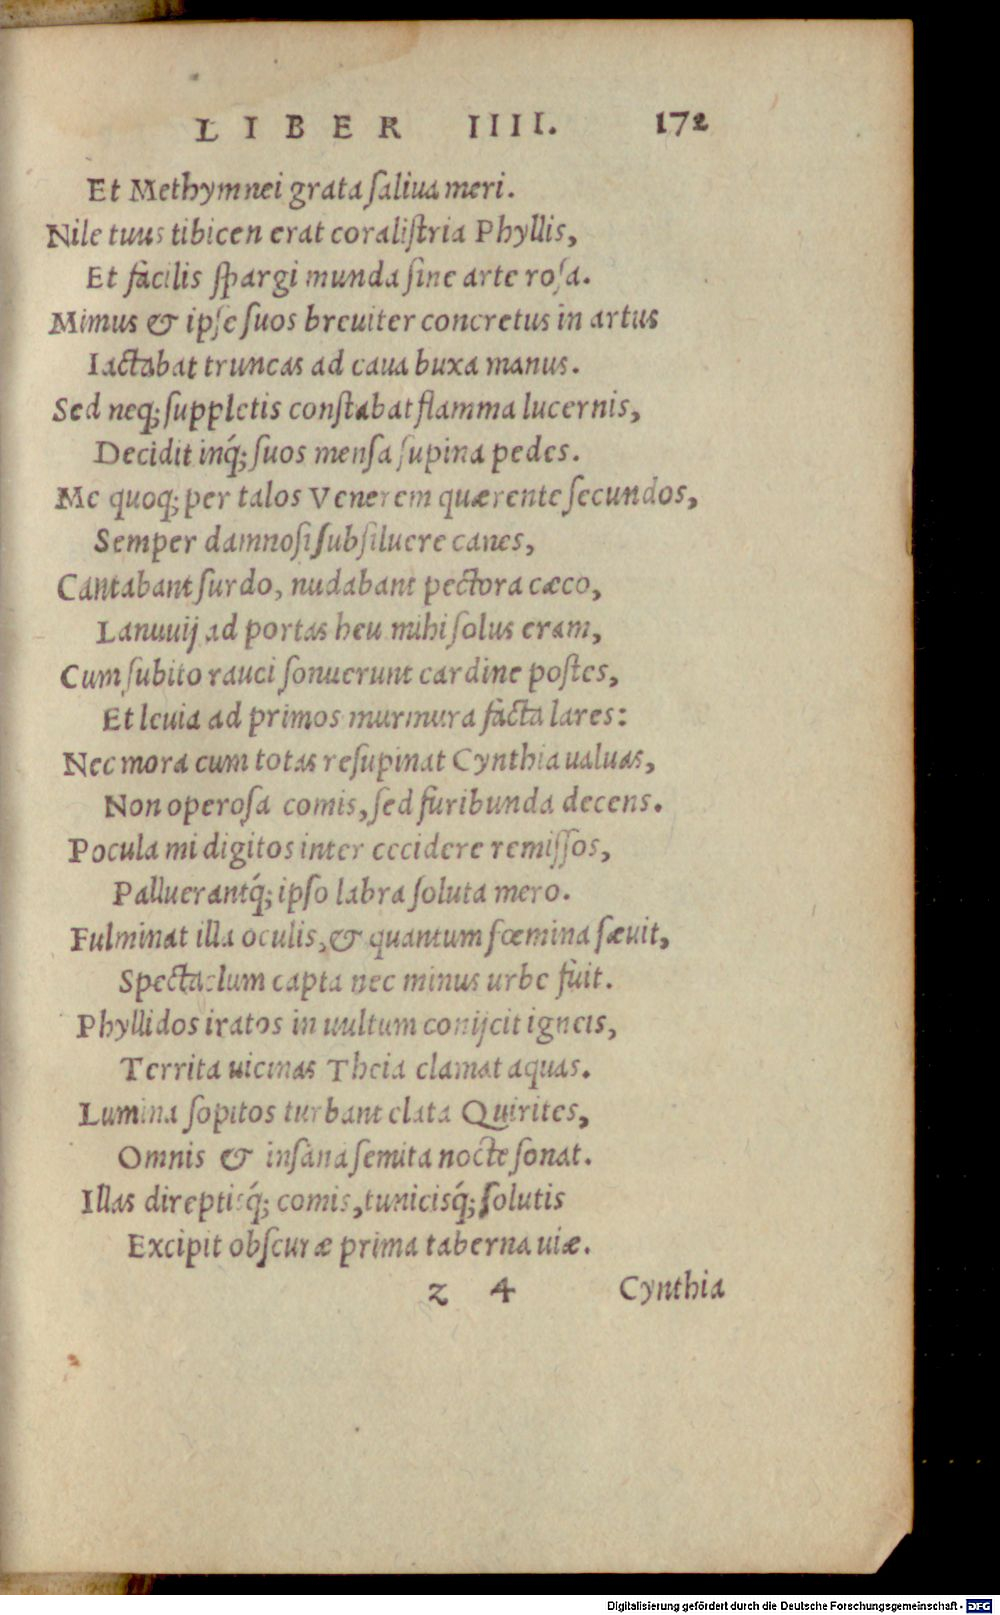 LIBER IIII. 172
Et Methymnei grata saliua meri.
Nile tuus tibicen erat coralistria Phyllis,
Et facilis spargi munda sine arte rosa.
Mimus & ipse suos breuiter concretus in artus
Iactabat truncas ad caua buxa manus.
Sed neq; suppletis constabat flamma lucernis,
Decidit inq́; suos mensa supina pedes.
Me quoq; per talos Venerem quærente secundos,
Semper damnosi subsiluere canes,
Cantabant surdo, nudabant pectora cæco,
Lanuuij ad portas heu mihi solus eram,
Cum subito rauci sonuerunt cardine postes,
Et leuia ad primos murmura facta lares:
Nec mora cum totas resupinat Cynthia ualuas,
Non operosa comis, sed furibunda decens.
Pocula mi digitos inter cecidere remissos,
Palluerantq́; ipso labra soluta mero.
Fulminat illa oculis, & quantum fœmina sæuit,
Spectaclum capta nec minus urbe fuit.
Phyllidos iratos in uultum conijcit igneis,
Territa uicinas Theia clamat aquas.
Lumina sopitos turbant elata Quirites,
Omnis & insana semita nocte sonat.
Illas direptisq́; comis, tunicisq́; solutis
Excipit obscuræ prima taberna uiæ.
z 4 Cynthia
Digitalisierung gefördert durch die Deutsche Forschungsgemeinschaft - DFG